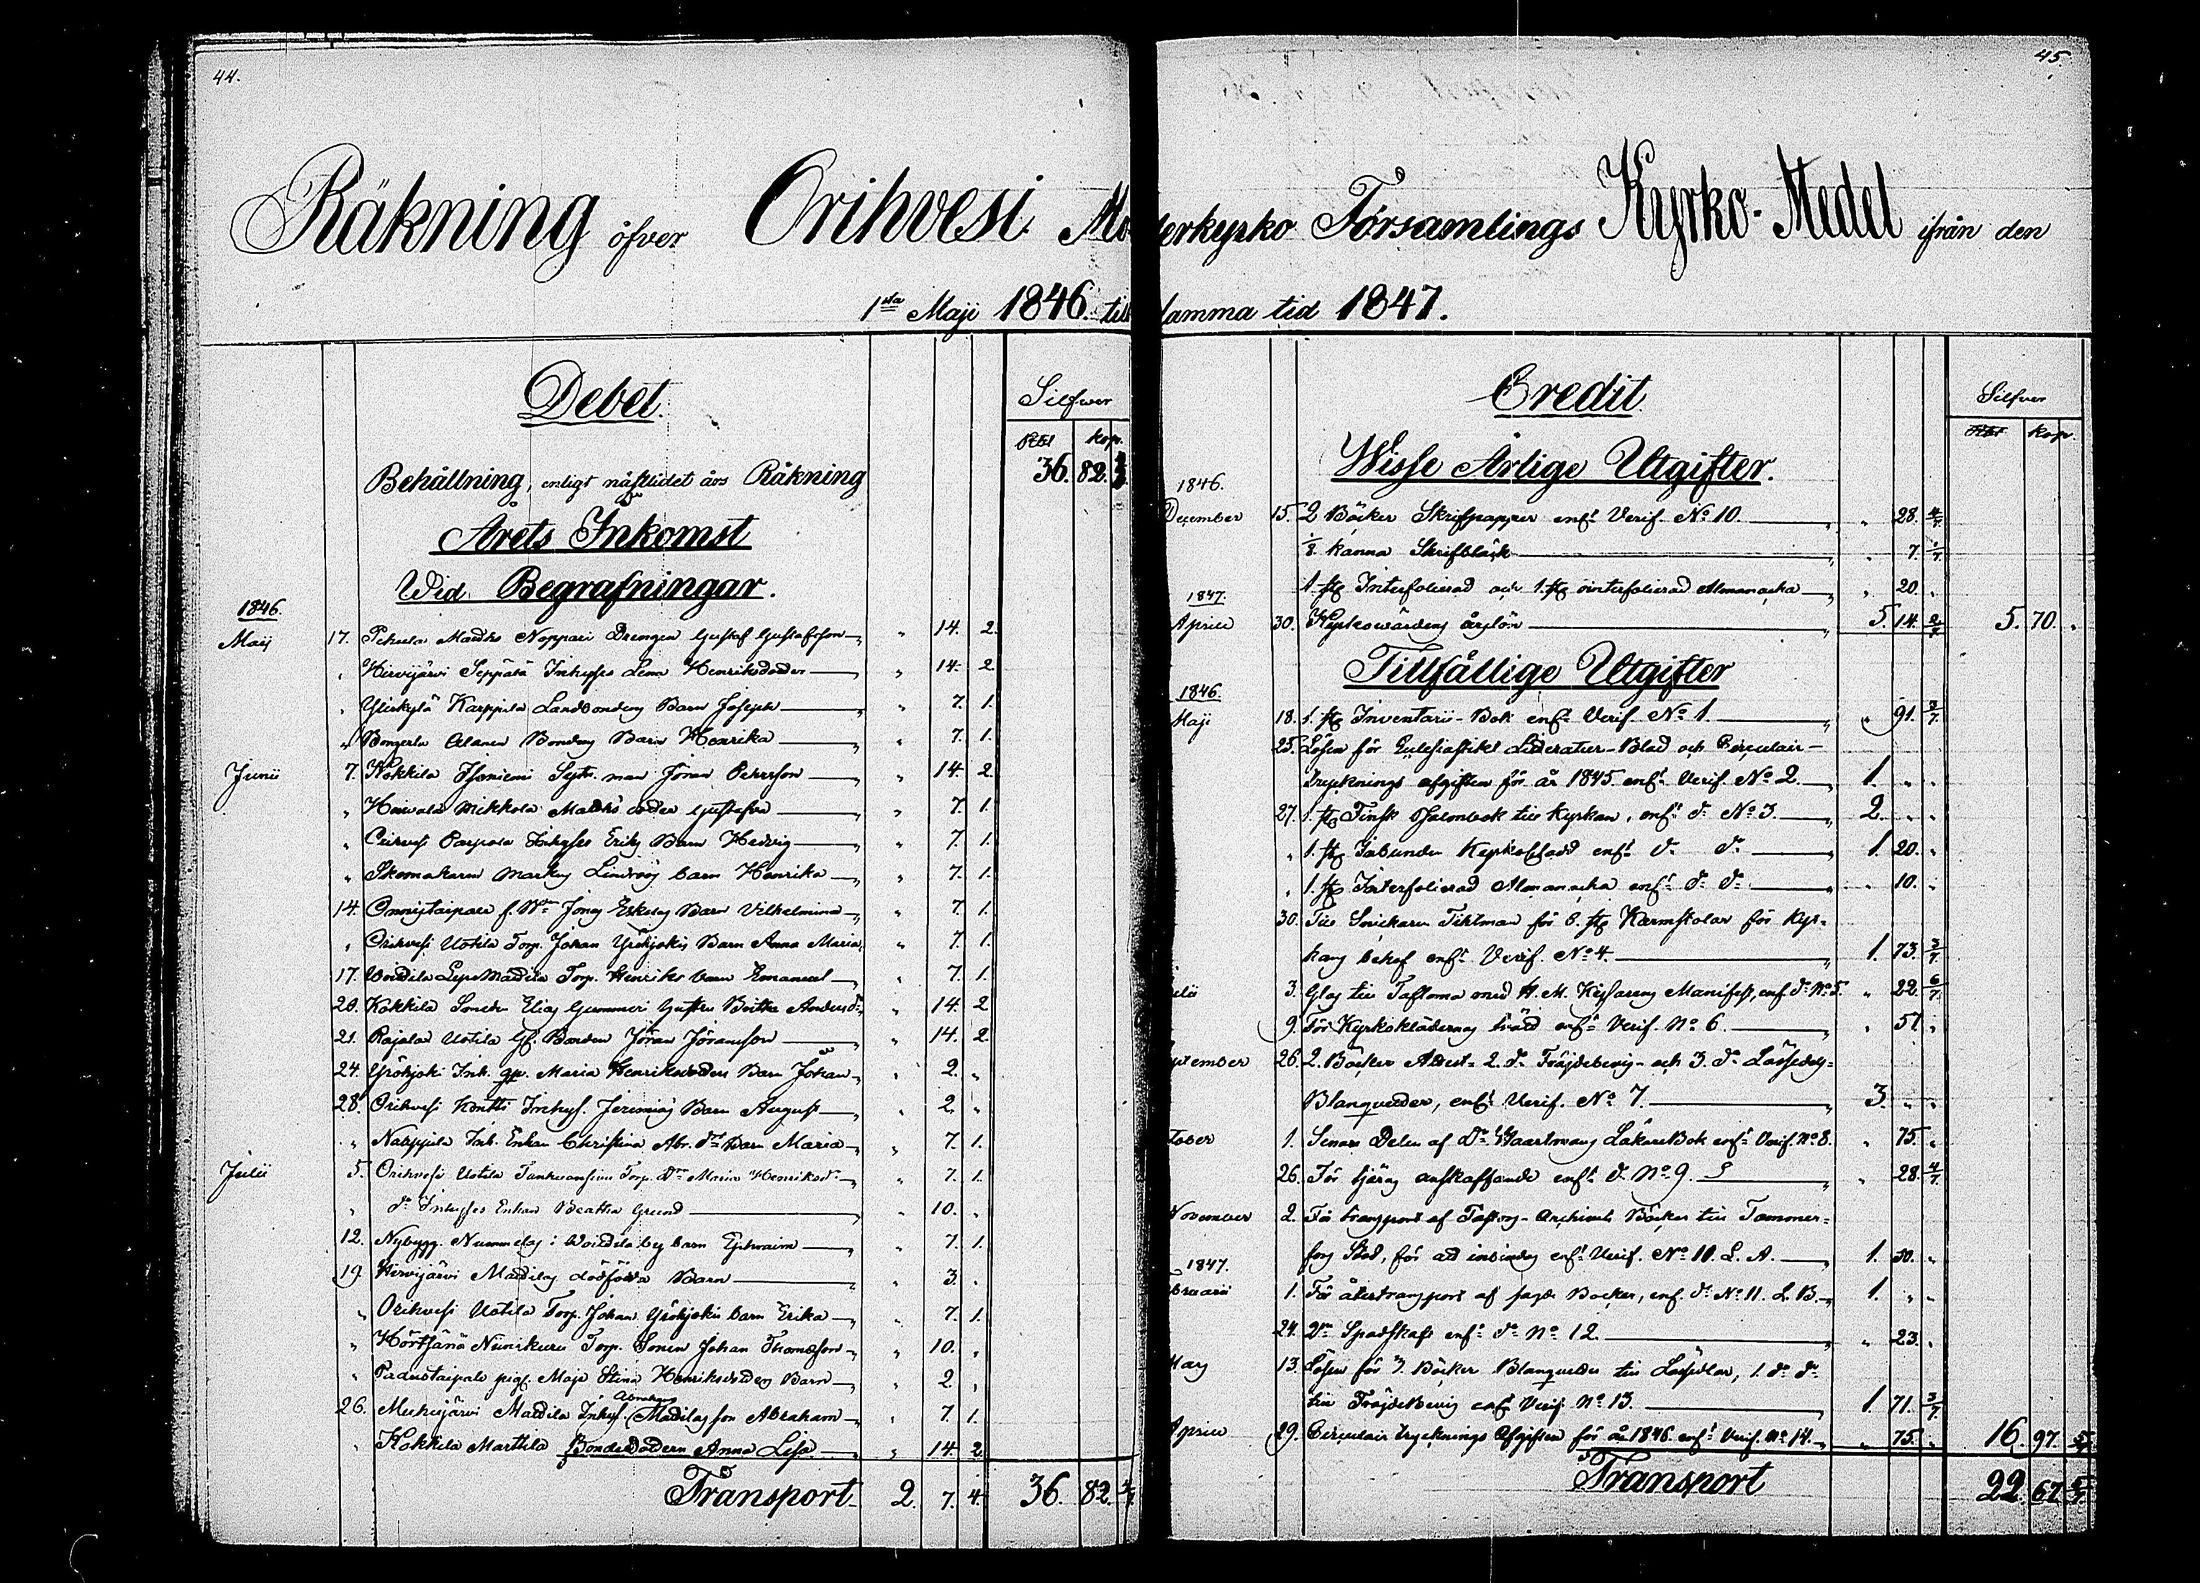 44.
Räkning öfver Orihvesi Mo
1sta Maji 1846. till
Debet.
Silfver
Rbl kop.
Behållning, enligt nästlidet års Räkning 36. 82. 3
Årets Inkomst
Wid Begrafningar.
1846.
Maij 17. Pehula Madhs Noppari Drengen Gustaf Gustafsson " 14. 2.
" Hirvijärvi Seppälä Inhyses Lena Henriksdoder " 14. 2
" Yliskylä Karppila Landbondens Barn Joseph " 7. 1.
" Alanen Bondens Barn Henrika " 7. 1.
Junii 7. Kokkila Isoniemi Syts. man Jöran Pehrsson " 14. 2
" Mikkola Madhs doder Gustafva " 7. 1.
" Inhyses Eriks Barn Hedvig " 7. 1.
" Skomakaren Markus Lindroos barn Henrika " 7. 1.
14. Onnistaipale f. Jonas Eskelas Barn Vilhelmina " 7. 1.
" Orihvesi Uotila Torp. Johan Yröhjokis Barn Anna Maria " 7. 1.
17. Voitila Mattila Torp. Henriks barn Emanuel " 7. 1.
20. Kokkila Elias Gummeri Hustru Beitha Andersdr " 14. 2
21. Rajalax Uotila Gl. Bonden Jöran Jöransson " 14. 2
24. Yröhjoki Inh. qp. Maria Henriksdoders Barn Johan " 2. "
28. Orihvesi Kontti Inhys. Jeremias Barn August " 2. "
" Nappila Inh. Enkan Christina Abr. dr Barn Maria " 7. 1.
Julii 5. Orihvesi Uotila Torp. Dr Maria Henriksdr " 7. 1.
" dr Inhyses Enkan Beatha Grund " 10. "
12. Nybygg. Nummelas i Voitila by barn Ephraim " 7. 1.
19. Hirvijärvi Mattilas dödfödda Barn " 3. "
" Orihvesi Uotila Torp. Johan Yröhjokis barn Erika " 7. 1.
" Hörtsänä Niinikuru Torp. Sonen Johan Thomasson " 10. "
" Padustaipale pig. Maja Stina Henriksdoders Barn " 2. "
Abrahams
26. Mattila Inhys. Mattilas son Abraham " 7. 1.
" Kokkila Marttila Bondedodern Anna Lisa " 14. 2
Transport 2. 7. 4. 36. 82. 3/7
45.
derkyrko Församlings Kyrko-Medel ifrån den
samma tid 1847.
Credit
Silfver
Rbl kop.
Wisse Årlige Utgifter.
1846.
December 15. 2 Böcker Skrifpapper enl. Verif. No 10. " 28. 4/7
1/8 kanna Skrifbläck " 7. 1/7
1. st. Interfolierad och 1. st. ointerfolierad Almanacka " 20. "
1847.
Aprill 30. Kyrkowärdens årslön 5. 14. 2/7 5. 70. "
Tillfällige Utgifter
1846.
Maji 18. 1. st. Inventarii-Bok enl. Verif. No 1. " 91. 3/7
25. Lösen för Ecclesiastikt Litteratur-Blad och Circulair-
Trycknings afgiften för år 1845 enl. Verif. No 2. 1. " "
27. 1. st. Finsk Psalmbok till Kyrkan, enl. do No 3. 2. " "
" 1. st. enl. do do 1. 20. "
" 1. st. Interfolierad Almanacka enl. do do " 10. "
30. Till Snickaren Tihtman för 6. st. Karmstolar för Kyr-
kans behof enl. Verif. No 4. 1. 73. 3/7
lii 3. Glas till Taflorna med H. M. Kejsarens Manifest, enl. do No 5. " 22. 6/7
9. För Kyrkoklädernas tvätt enl. Verif. No 6. " 51. "
eptember 26. 2. Böcker Attest- 2. do Fräjdebevis- och 3. do Låssedels-
Blanquetter, enl. Verif. No 7. 3. " "
tober 1. Senare Delen af Dr Haartmans Läkare Bok enl. Verif. No 8. " 75. "
26. För tjäras anskaffande enl. do No 9. " 28. 4/7
November 2. För transport af Archivets Böcker till Tammer-
fors Stad, för att inbindas enl. Verif. No 11. L. A. 1. 30. "
1847.
bruarii 1. För återtransport af sagde Böcker, enl. do No 11. L. B. 1. " "
24. enl. do No 12. " 23. "
Mars 13. Lösen för 3 Böcker Blanquetter till Låssedlar, 1. do do
till Fräjdebevis enl. Verif. No 13. 1. 71. 3/7
Aprill 29. Circulair Trycknings Afgiften för år 1846 enl. Verif. No 14. " 75. " 16. 97. 5/7
Transport 22. 67. 5/7